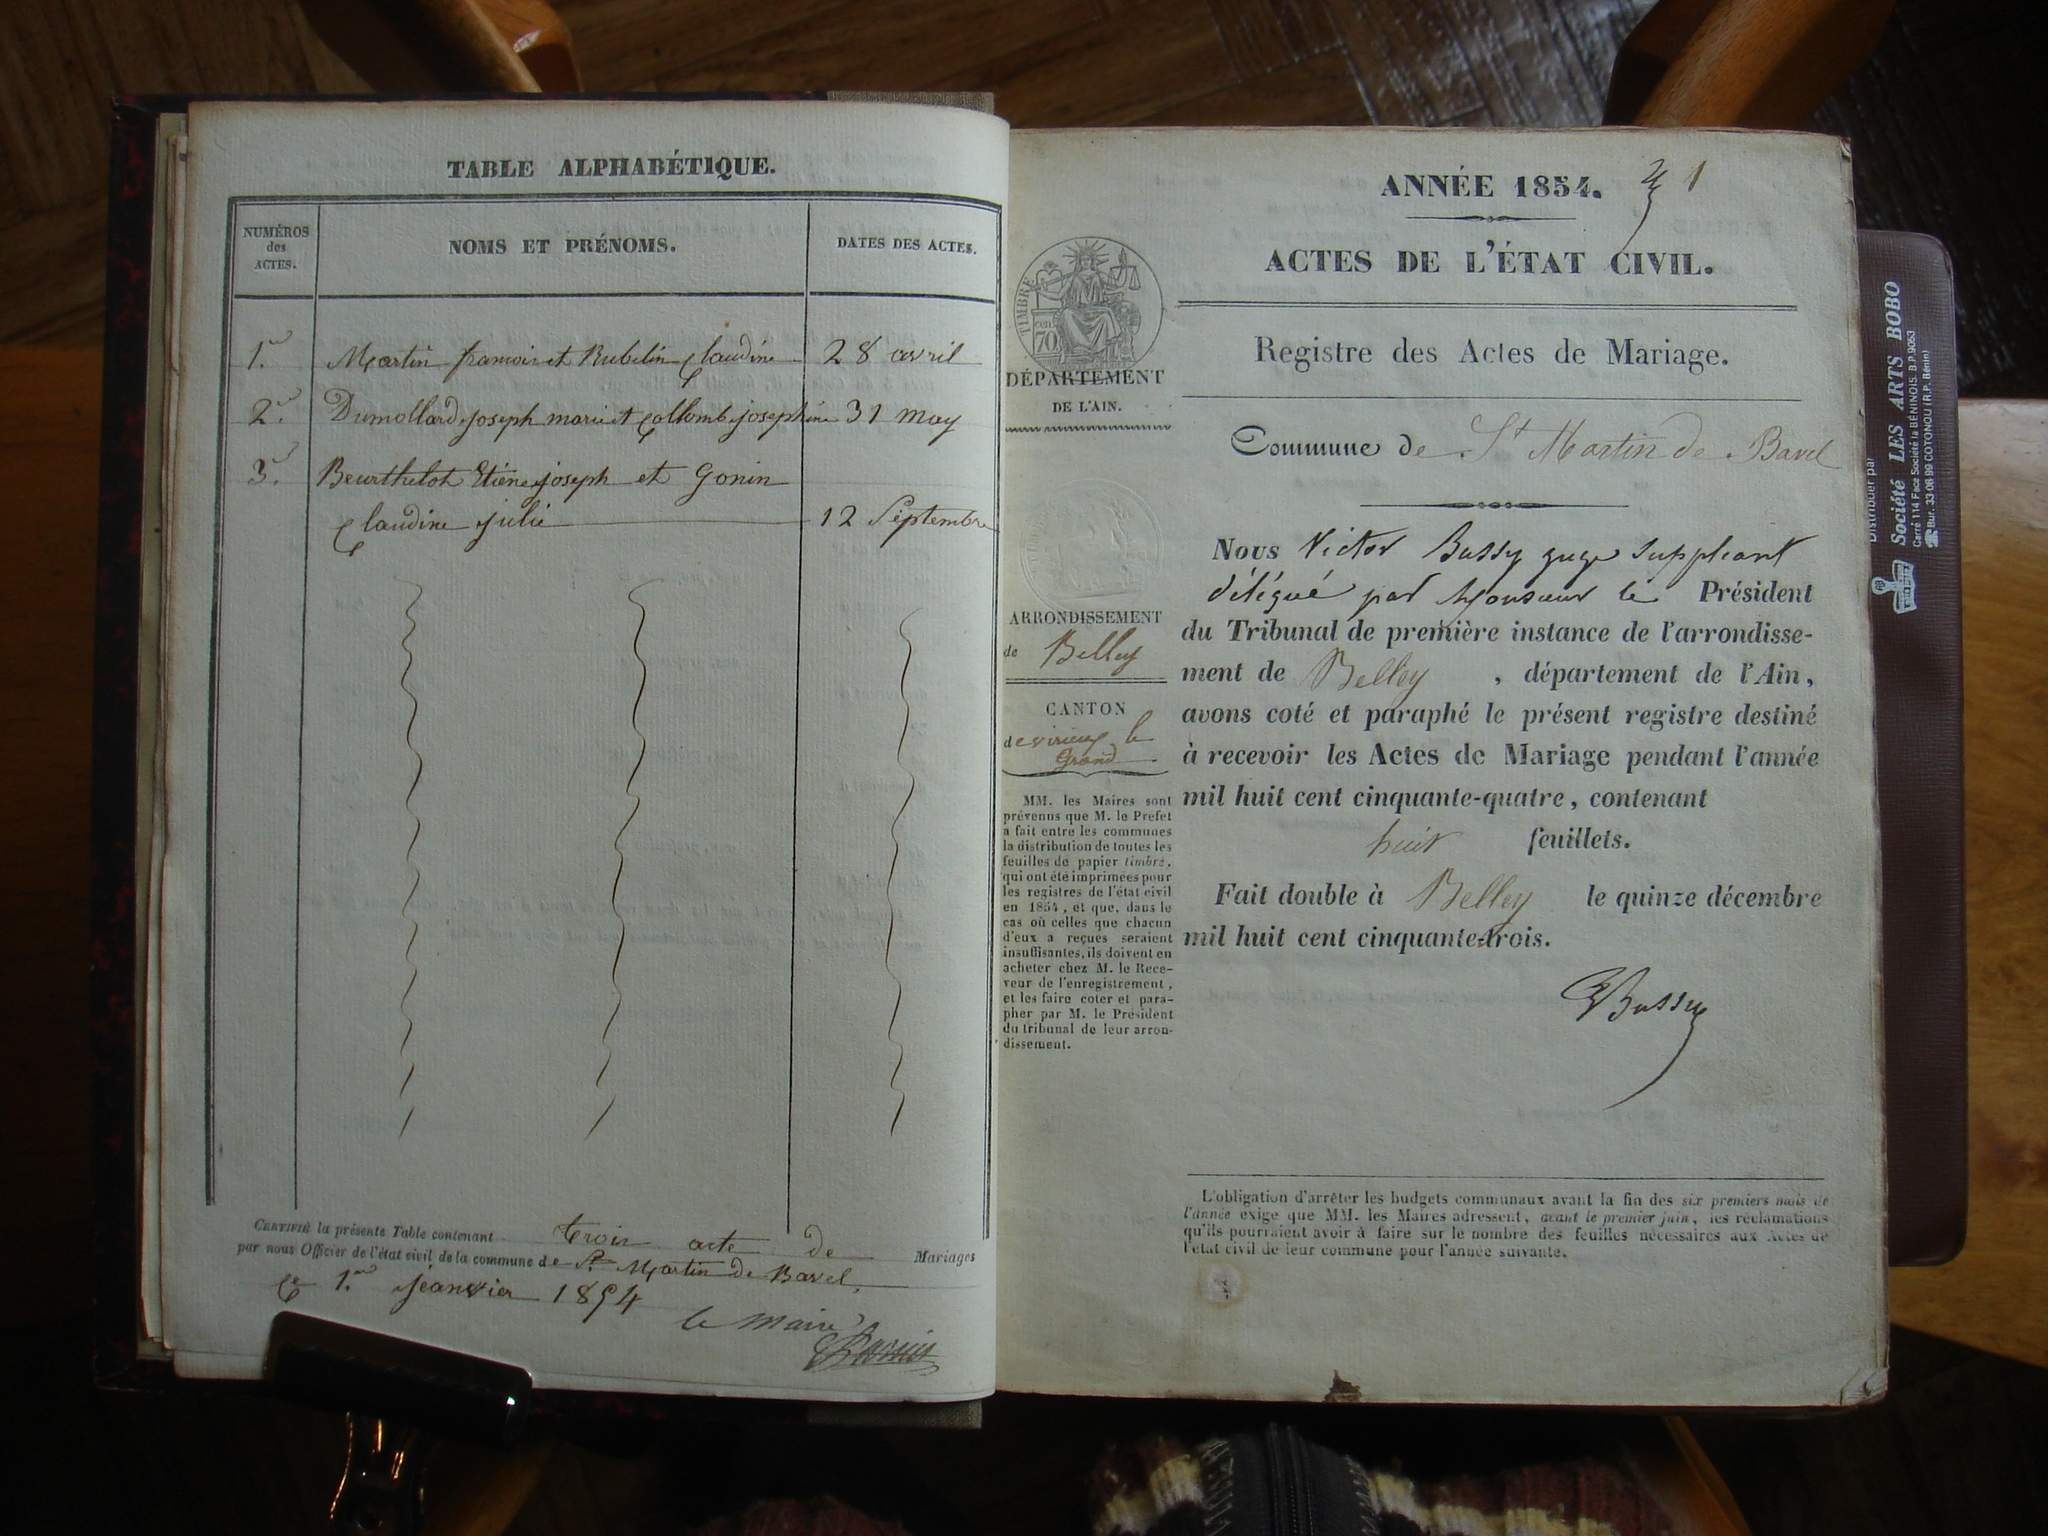 TABLE ALPHABÉTIQUE.
NUMÉROS
des
ACTES.
NOMS ET PRÉNOMS.
DATES DES ACTES.
1. Martin francois et Rubelin Claudine 28 avril
2. Dumollard joseph marie et Collomb josephine 31 may
3. Beurthelot Etiéne joseph et Gonin
Claudine julie 12 Septembre
CERTIFIÉ la présente Table contenant trois acte de Mariages
par nous Officier de l'état civil de la commune de St Martin de Bavel
Ce 1. Jeanvier 1854
le maire
ANNÉE 1854. 1
ACTES DE L'ÉTAT CIVIL.
Registre des Actes de Mariage.
Commune de St Martin de Bavel
Nous Victor Bussy guge suppleant
délégué par Monsieur le Président
du Tribunal de première instance de l'arrondisse-
ment de Belley , département de l'Ain,
avons coté et paraphé le présent registre destiné
à recevoir les Actes de Mariage pendant l'année
mil huit cent cinquante-quatre, contenant
huit feuillets.
Fait double à Belley le quinze décembre
mil huit cent cinquante-trois.
Bussy
L'obligation d'arrêter les budgets communaux avant la fin des six premiers mois de
l'année exige que MM. les Maires adressent, avant le premier juin, les réclamations
qu'ils pourraient avoir à faire sur le nombre des feuilles nécessaires aux Actes de
l'état civil de leur commune pour l'année suivante.
TIMBRE
cen
70
DÉPARTEMENT
DE L'AIN.
ARRONDISSEMENT
de Belley
CANTON
de virieux le
Grand
MM. les Maires sont
prévenus que M. le Prefet
a fait entre les communes
la distribution de toutes les
feuilles de papier timbré,
qui ont été imprimées pour
les registres de l'état civil
en 1854, et que, dans le
cas où celles que chacun
d'eux a reçues seraient
insuffisantes, ils doivent en
acheter chez M. le Rece-
veur de l'enregistrement,
et les faire coter et para-
pher par M. le Président
du tribunal de leur arron-
dissement.
Distribuer par
Société LES ARTS BOBO
Carré 114 Face Société la BÉNINOIS. B.P. 9053
Bur. 33 08 99 COTONOU (R.P. Bénin)